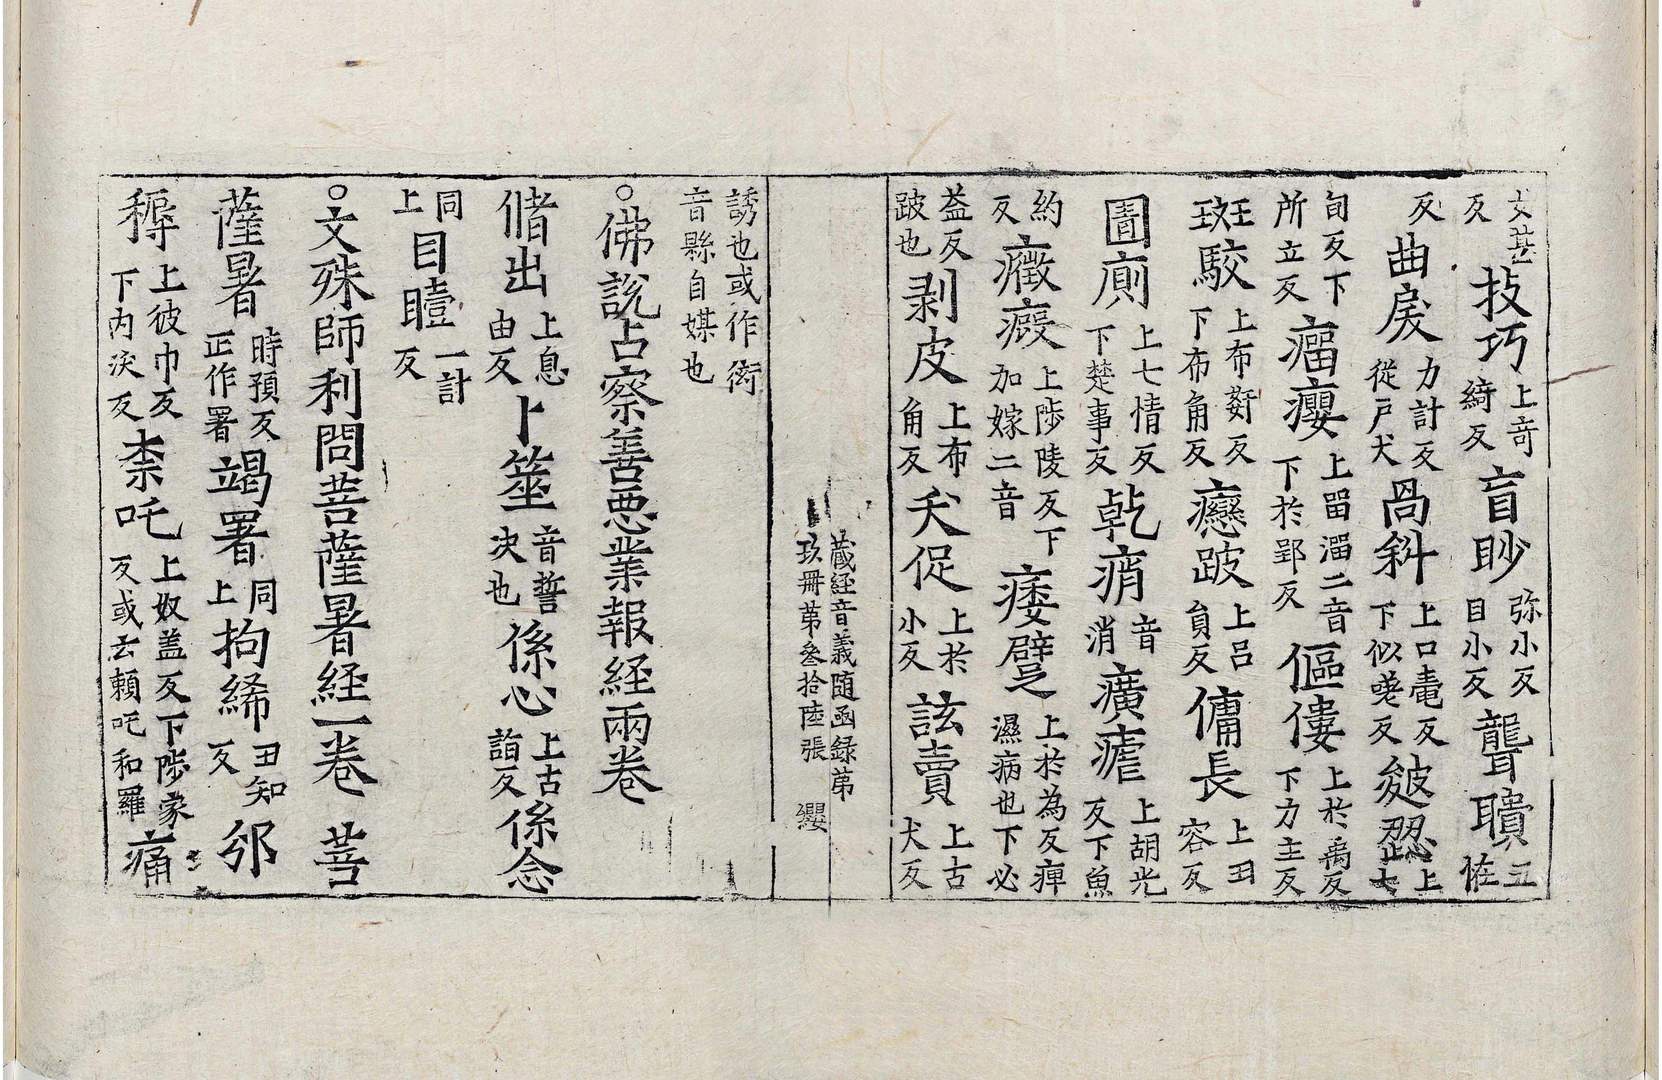 反技巧上奇綺反盲眇弥小反目小反聾聵五恠
反曲戾力計反從戶犬咼斜上口鼃反下似嗟反皴澀上七
旬反下所立反瘤癭上留溜二音下於郢反傴僂上於禹反下力主反
斑駮上布姧反下布角反癦跛上呂貟反傭長上丑容反
圊廁上七情反下楚事反乹痟音消癀瘧上胡光反下魚
約反癥瘕上陟陵反下加嫁二音痿躄上於為反痺濕病也下必
益反跛也剥皮上布角反夭促上於小反詃賣上古犬反
藏経音義随函録第玖冊第叄拾陸張 纓
誘也或作衒音縣自媒也
○佛說占察善惡業報経兩卷
偦出上息由反卜筮音誓决也係心上古詣反係念
同上目曀一計反
○文殊師利問菩薩署経一卷 菩
薩署時預反正作署竭署同上拘絺丑知反邠
䅽上彼巾反下內浚反柰吒上奴盖反下陟家反或云頼吒和羅痛